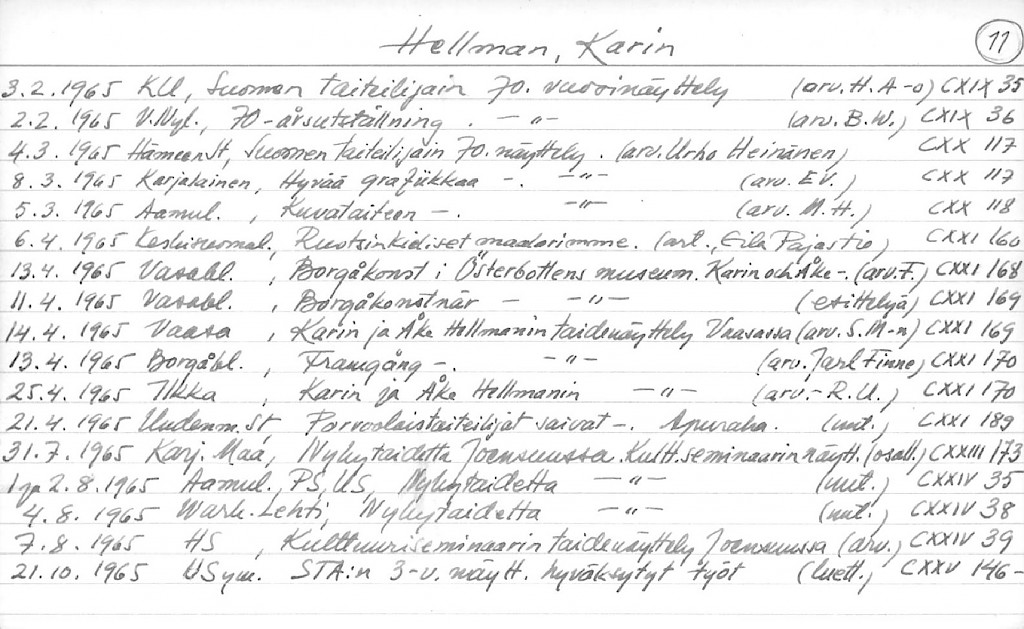 Hellman, Karin 11
3.2.1965 KU, Suomen taiteilijain 70. vuosinäyttely (arv. H. A-o) CXIX 35
2.2. 1965 V.Nyl., 70-årsutställning . —"— (arv. B.W.) CXIX 36
4.3. 1965 Hämeen St, Suomen taiteilijain 70. näyttely. (arv. Urho Heinänen) CXX 117
8.3. 1965 Karjalainen, Hyvää grafiikkaa -. —"— (arv. E V.) CXX 117
5.3. 1965 Aamul. , Kuvataiteen -. —"— (arv. M.H.) CXX 118
6.4. 1965 Keskisuomal., Ruotsinkieliset maalarimme. (art., Eila Pajastio) CXXI 160
13.4. 1965 Vasabl. , Borgåkonst i Österbottens museum. Karin och Åke -. (arv. F.) CXXI 168
11.4. 1965 Vasabl. , Borgåkonstnär - —"— (esittelyä) CXXI 169
14.4. 1965 Vaasa , Karin ja Åke Hellmanin taidenäyttely Vaasassa (arv. S.M-n) CXXI 169
13.4. 1965 Borgåbl. , Framgång -. —"— (arv. Jarl Finne) CXXI 170
25.4. 1965 Ilkka , Karin ja Åke Hellmanin —"— (arv.- R.U.) CXXI 170
21.4. 1965 Uudenm. St, Porvoolaistaiteilijat saivat -. Apuraha. (uut.) CXXI 189
31.7. 1965 Karj. Maa, Nykytaidetta Joensuussa. Kultt.seminaarin näytt. (osall.) CXXIII 173
1 ja 2.8.1965 Aamul., PS, US, Nykytaidetta —"— (uut.) CXXIV 35
4.8. 1965 Wark. Lehti, Nykytaidetta —"— (uut.) CXXIV 38
7.8. 1965 HS , Kulttuuriseminaarin taidenäyttely Joensuussa (arv.) CXXIV 39
21.10. 1965 USym. STA:n 3-v. näytt. hyväksytyt työt (luett.) CXXV 146-